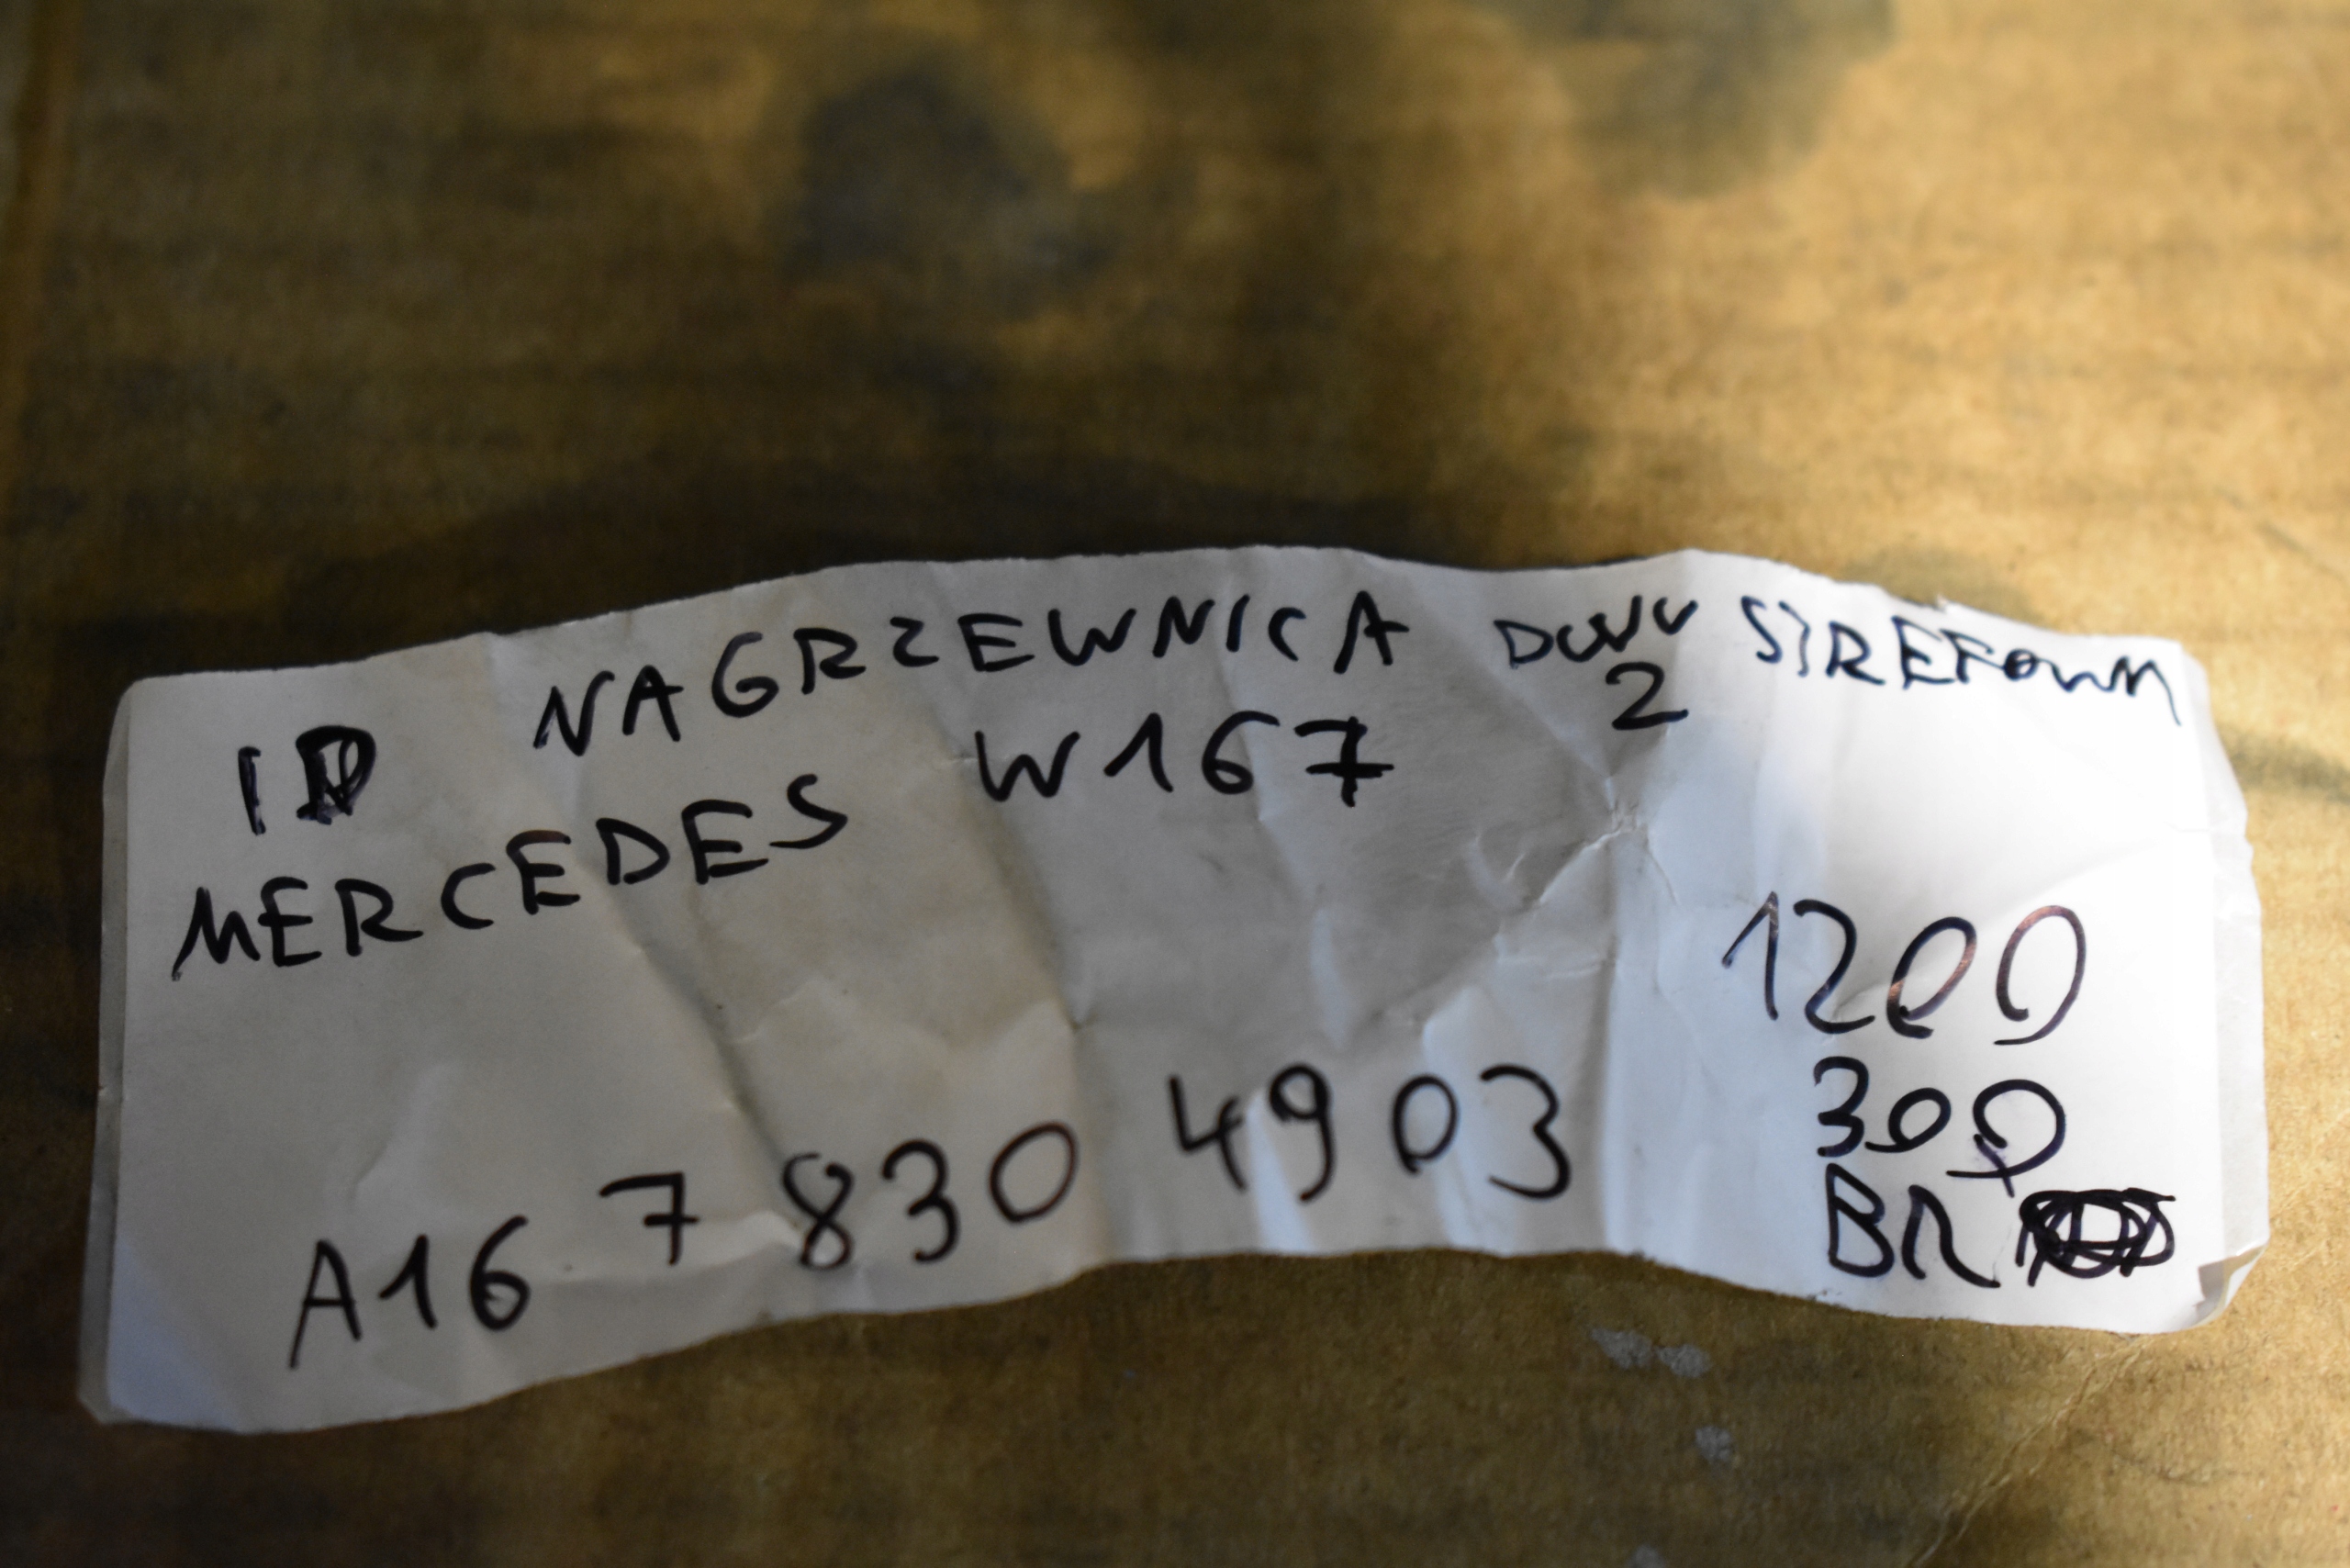 ID NAGRZEWNICA DWU STREFOWA
2
MERCEDES W167
1200
300
BR
A16 7 830 4903